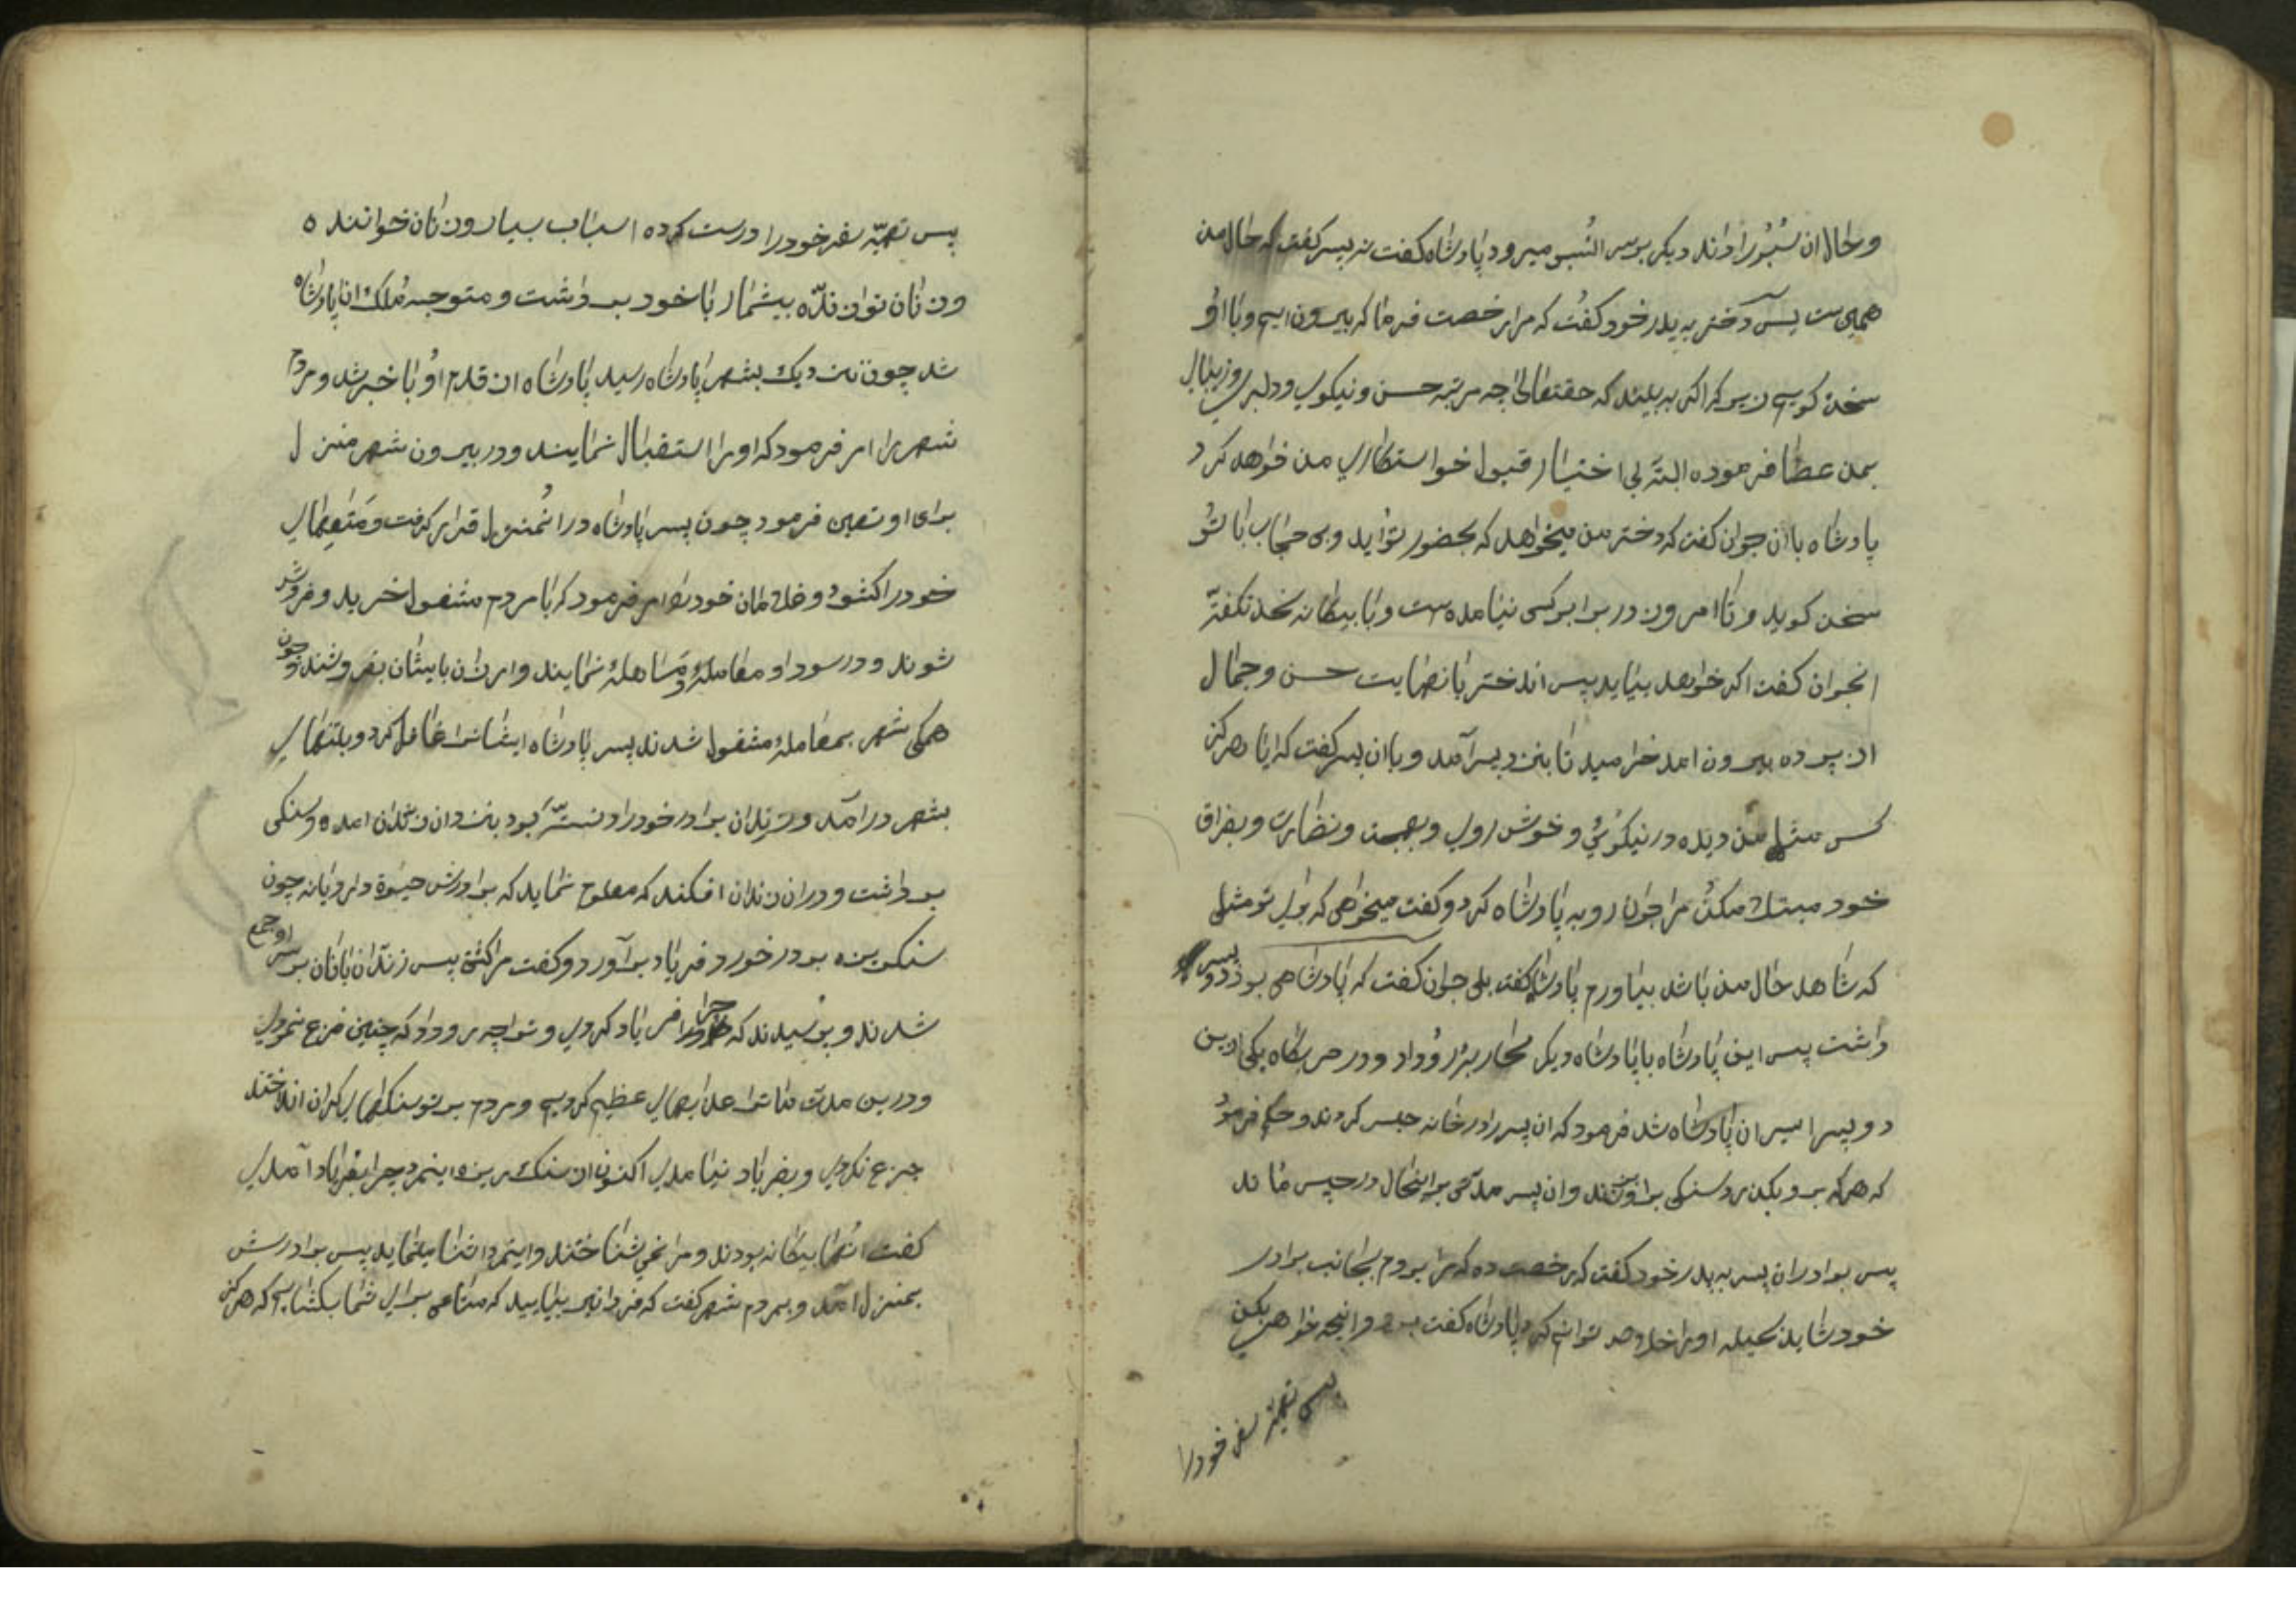 و حال آن سُبُو را داند دیکر بوسر انسُبو میرود پادشاه کفت نه پسر کفت که حال من
همین ست پس آن دختر به پدر خود کفت که مرا رخصت فرما که بیرون ایم و با او
سخن کویم زیرا که اکر به بیند که حقتعالی چه مرتبه حسن و نیکویی و دلبری و زیبایی
بمن عطا فرموده البته بی اختیار قبول خواستکاری من خواهد کرد
پادشاه با ان جوان کفت که دختر من میخواهد که بحضور تو آید و بی حجاب با تو
سخن کوید و تا امروز در برابر کسی نیامده ست و با بیکانه سخن نکفته
انجوان کفت اکر خواهد بیاید پس اندختر با نهایت حسن و جمال
از پرده بیرون امد خرامید تا بنزد پسر آمد و با ان پسر کفت که ایا هرکز
کس مثل من دیده در نیکویی و خوش رویی و بهجت و نضارت و بفراق
خود مبتلا مکن مرا جوان رو به پادشاه کرد و کفت میخواهی که برای تو مثلی
که شاهد حال من باشد بیاورم پادشاه کفت بلی جوان کفت که پادشاهی بود دو پسر
داشت پس این پادشاه با پادشاه دیکر محاربه رو داد و در حربکاه یکی ازین
دو پسر اسیر ان پادشاه شد فرمود که ان پسر را در خانه حبس کردند و حکم فرمود
که هر که برو بکذرد سنکی بر او زند و ان پسر مدتی بر اینحال در حبس ماند
پس برادر ان پسر به پدر خود کفت که رخصت ده که من بروم بجانب برادر
خود شاید بحیله او را خلاص توانم کرد پادشاه کفت برو و انچه خواهی بکن
پس تهیه سفر خود را
پس تهیّه سفر خود را درست کرده اسباب بسیار و زنان خواننده
و زنان نوازنده بیشمار با خود برداشت و متوجه ملک ان پادشاه
شد چون نزدیک بشهر پادشاه رسید پادشاه از قدم او با خبر شد و مردم
شهر را امر فرمود که او را استقبال نمایند و در بیرون شهر منزل
برای او تعیین فرمود چون پسر پادشاه در انمنزل قرار کرفت و متاعهای
خود را کشود و غلامان خود را امر فرمود که با مردم مشغول خرید و فروش
شوند و در سودا و معامله و مساهله نمایند و ارزان بایشان بفروشند و چون
همکی شهر بمعامله مشغول شدند پسر پادشاه ایشانرا غافل کرد و بتنهایی
بشهر درآمد و زندان برادر خود را دانسته بود بنزد ان زندان امده و سنکی
برداشت و در ان زندان افکند که معلوم نماید که برادرش حیوة دارد یا نه چون
سنک ریزه بر در خورد فریاد برآورد و کفت مرا کشتی پس زندان بانان بر سر او جمع
شدند و پرسیدند که چرا فریاد کردی و ترا چه رو داد که چنین فزع نمودی
و درین مدت ما ترا عذابهای عظیم کردیم و مردم بر تو سنکهای کران انداختند
جزع نکردی و بفریاد نیامدی اکنون از سنک ریزه اینمرد چرا بفریاد آمدی
کفت انها بیکانه بودند و مرا نمی شناختند و اینمرد اشنا مینماید پس برادرش
بمنزل امد و بمردم شهر کفت که فردا نیز بیایید که متاعی برای شما بکشایم که هرکز